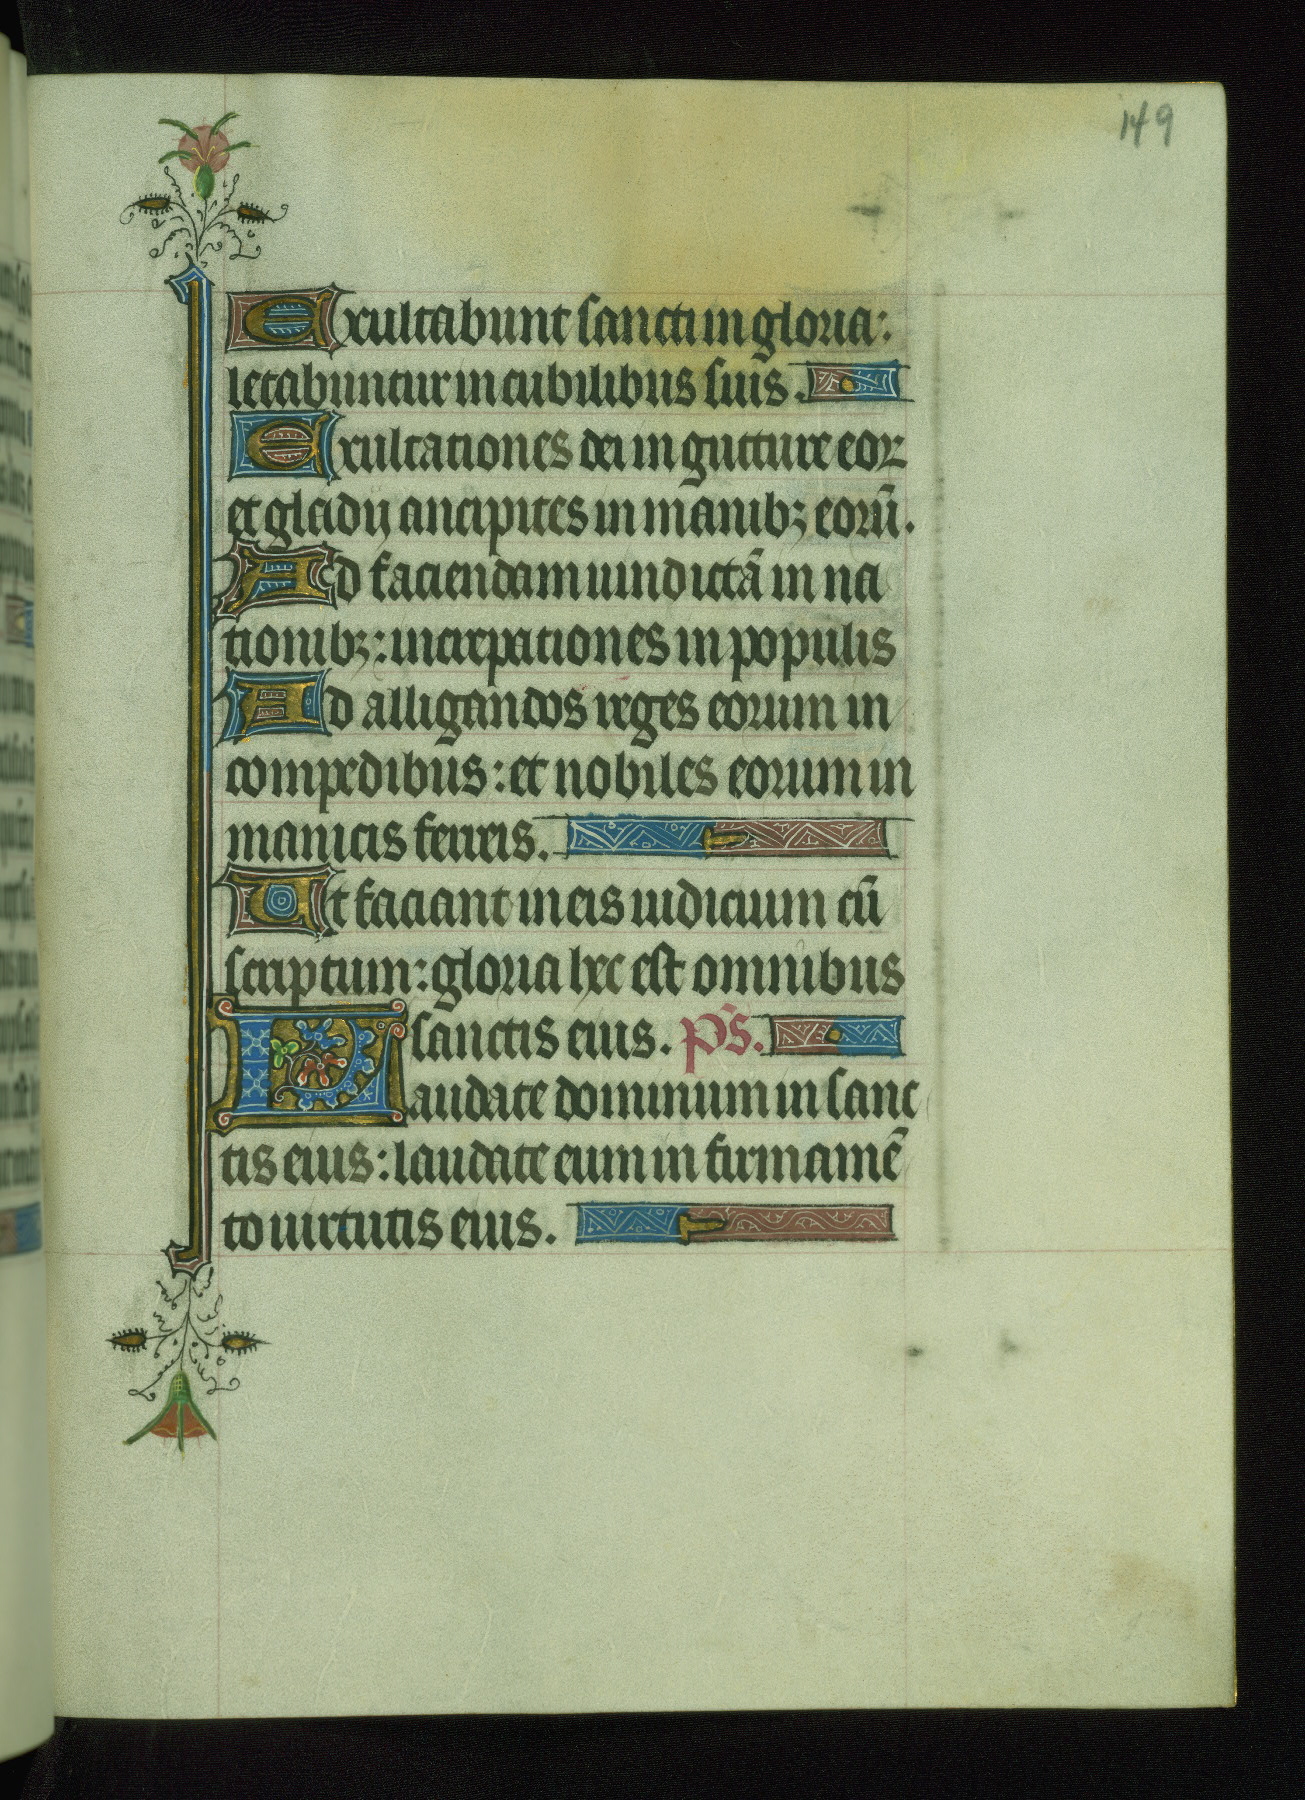 149
Exultabunt sancti in gloria:
letabuntur in cubilibus suis.
Exultationes dei in gutture eoꝝ
et gladij ancipites in manibꝫ eorū.
Ad faciendam uindictā in na
tionibꝫ: increpationes in populis
Ad alligandos reges eorum in
compedibus: et nobiles eorum in
manicis ferreis.
Ut faciant in eis iudicium cū
scriptum: gloria hec est omnibus
sanctis eius. p̄s.
Laudate dominum in sanc
tis eius: laudate eum in firmamē
to uirtutis eius.